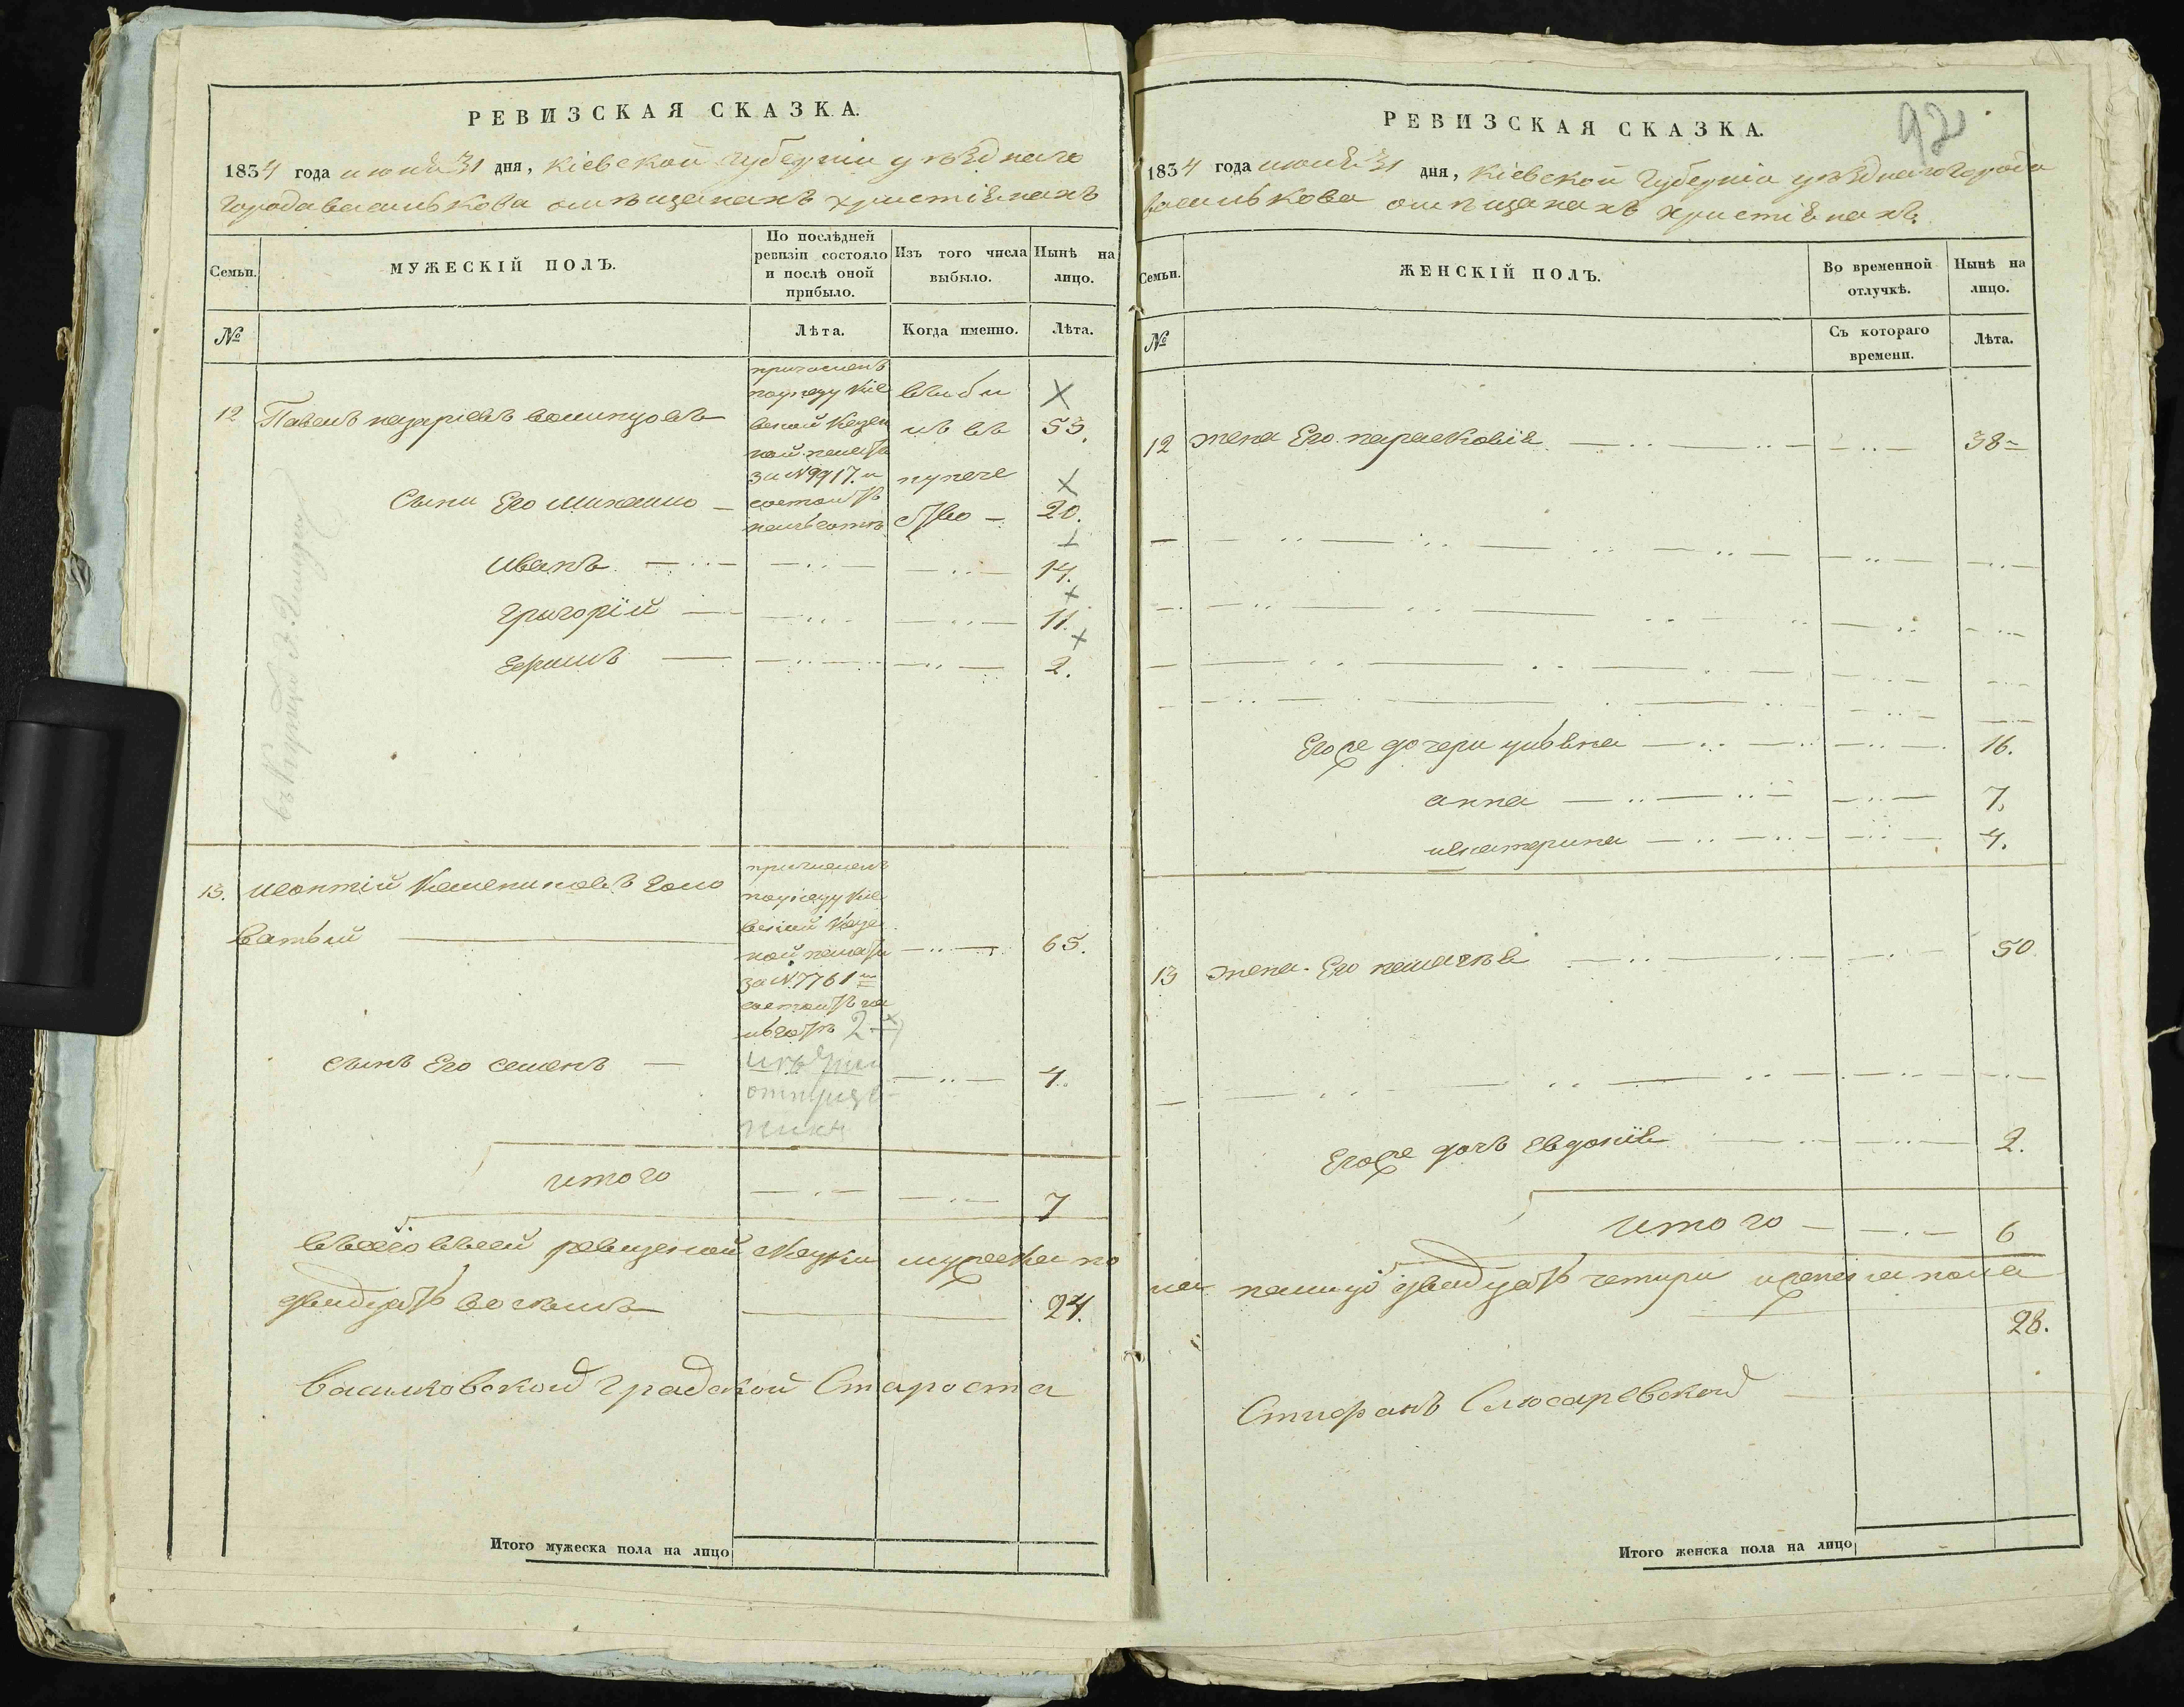 РЕВИЗСКАЯ СКАЗКА.
1834 года июня 31 дня, Кіевской Губерніи уѣзднаго
города василькова омѣщанахъ христіянахъ
Семьи.
МУЖЕСКІЙ ПОЛЪ.
По послѣдней ревизіи состояло и послѣ оной прибыло.
Изъ того числа выбыло.
Нынѣ на лицо.
№
Лѣта.
Когда именно.
Лѣта.
12 Павелъ назаріевъ
причисленъ
поуказу кіе
вской казен
ной палаты
за №9917. и
состоитъ
выбы
лъ въ
купече
ство
53.
Сыни Его михаило 20.
иванъ 14.
григорій 11.
2.
13. леонтій Голо
ватый
причисленъ
поуказу кіе
вской казен
ной палаты
за №7761
65.
сынъ Его семенъ 4.
итого 7
всего въсей ревизской скаски мужеска по
двадцать восемь 24.
васильковской градской Староста
Итого мужеска пола на лицо
92
РЕВИЗСКАЯ СКАЗКА.
1834 года июня 31 дня, Кіевской Губерніи уѣзднаго города
василькова омѣщанахъ христіянахъ
Семьи.
ЖЕНСКІЙ ПОЛЪ.
Во временной отлучкѣ.
Нынѣ на лицо.
№
Съ котораго времени.
Лѣта.
12 жена Его парасковія 38
Егоже дочери ульяна 16.
анна 7.
икатерина 4.
13 жена Его 50
Егоже дочь Евдокія 2.
итого 6
ла налицо двадцать четыри иженска пола
28.
Стифанъ Слюсаревской
Итого женска пола на лицо